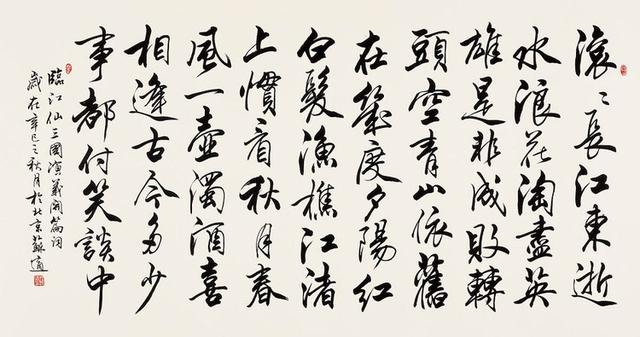 滾〻長江東逝
水浪花淘盡英
雄是非成敗轉
頭空青山依舊
在幾度夕陽紅
白髮漁樵江渚
上慣看秋月春
風一壺濁酒喜
相逢古今多少
事都付笑談中
臨江仙三國演義開篇詞
歲在辛巳之秋月於北京蘇適